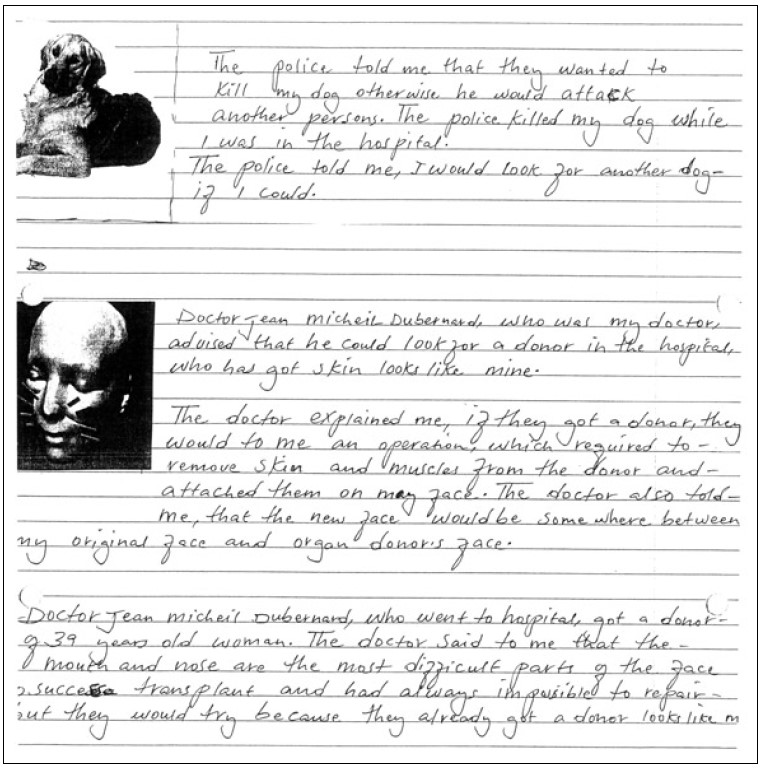 The police told me that they wanted to
kill my dog otherwise he would attack
another persons. The police killed my dog while
I was in the hospital.
The police told me, I would look for another dog-
if I could.
Doctor Jean micheil Dubernard, who was my doctor,
advised that he could look for a donor in the hospital,
who has got skin looks like mine.
The doctor explained me, if they got a donor, they
would to me an operation, which required to-
remove skin and muscles from the donor and-
attached them on my face. The doctor also told-
me, that the new face would be some where between
my original face and organ donor's face.
Doctor Jean micheil Dubernard, who went to hospital, got a donor-
of 39 years old woman. The doctor said to me that the-
mouth and nose are the most difficult parts of the face
transplant and had always impossible to repair-
but they would try because they already got a donor looks like m